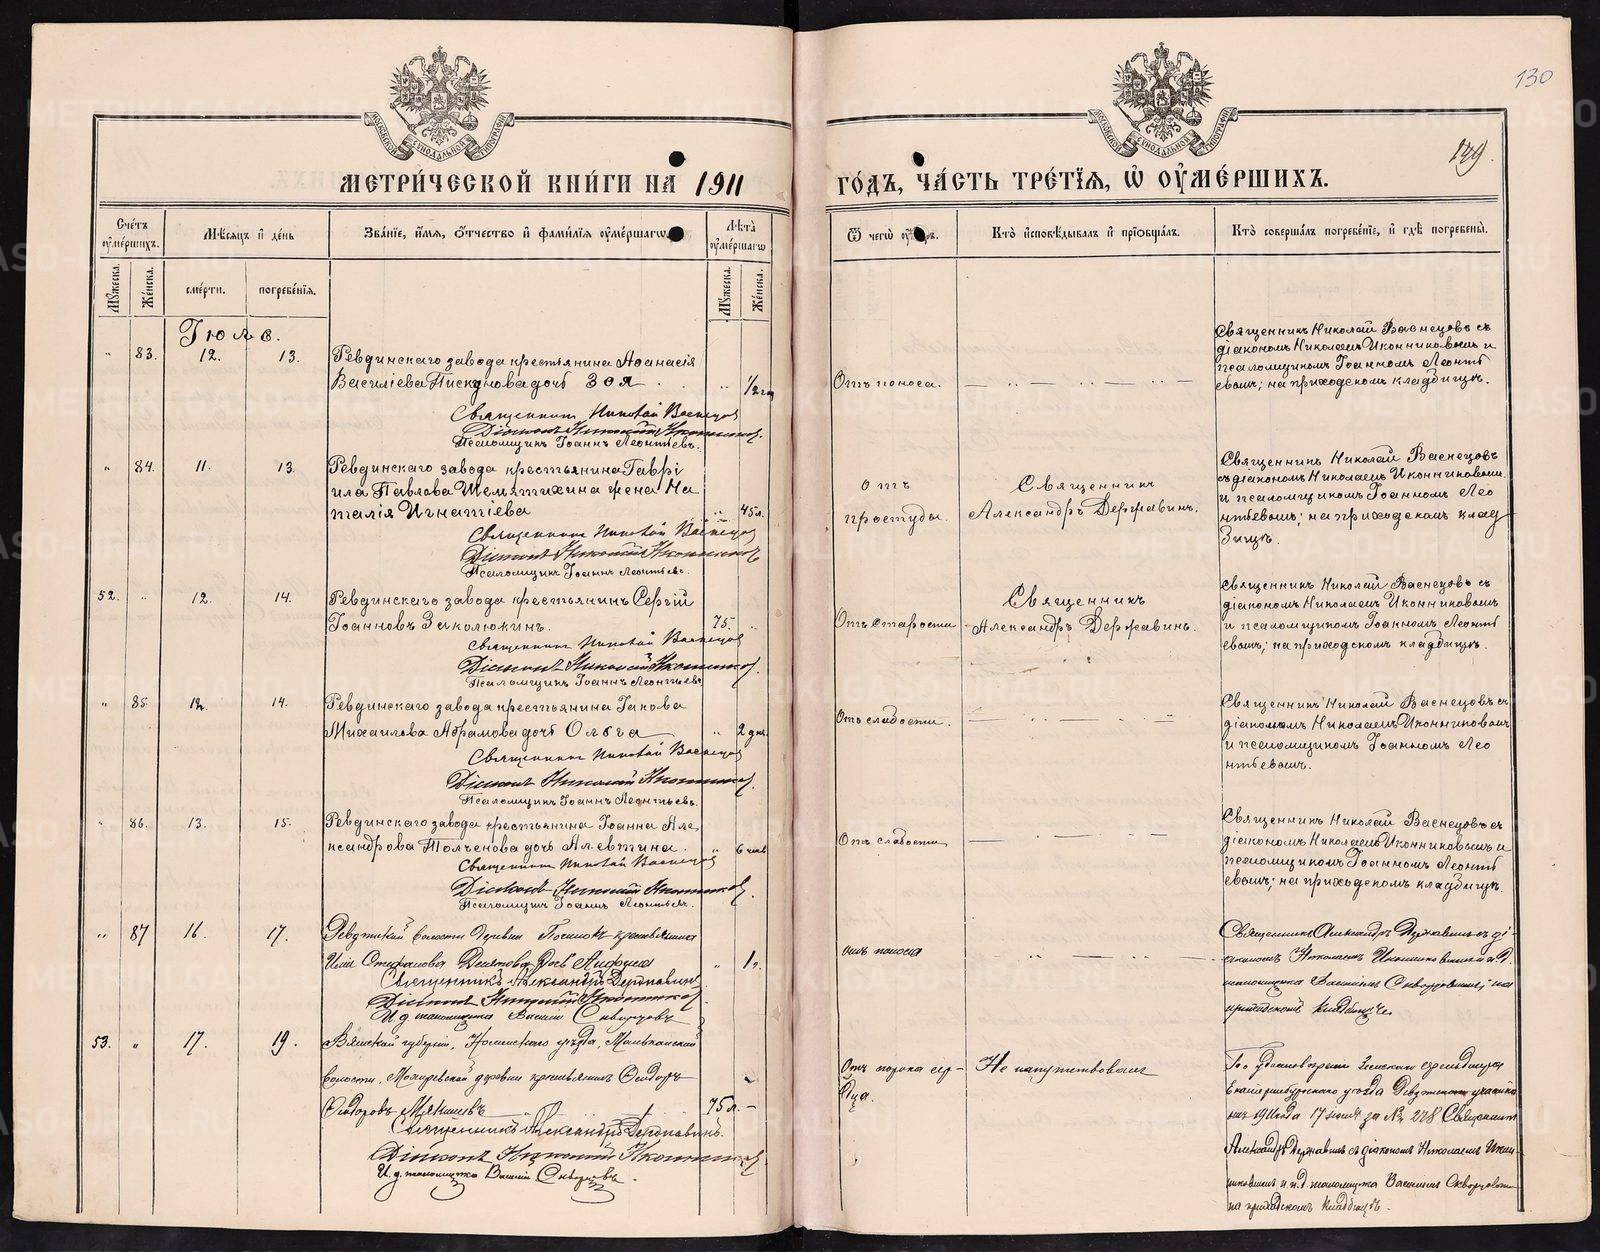 130
129.
МЕТРИ́ЧЕСКОЙ КНИ́ГИ НА 1911 ГО́ДЪ, ЧА́СТЬ ТРЕ́ТЇѦ, Ѡ҆ ОУ҆МЕ́РШИХЪ.
Сче́тъ оу҆ме́ршихъ.
Мѣ́сѧцъ и҆ де́нь
Зва́нїе, и҆́мѧ, ѻ҆́тчество и҆ фами́лїѧ оу҆ме́ршагѡ
Лѣ́та оу҆ме́ршагѡ
Ѿ чегѡ̀
Кто̀ и҆сповѣ́дывалъ и҆ прїѡбща́лъ.
Кто̀ соверша́лъ погребе́нїе, и҆ гдѣ̀ погребены̀.
Мꙋ́жеска.
Же́нска.
сме́рти.
погребе́нїѧ.
Мꙋ́жеска.
Же́нска.
Іюль.
" 83. 12. 13.
Ревдинскаго завода крестьянина Аѳанасія
Василіева Пискунова дочь Зоя " 1/2 год
Священникъ Николай Васнецовъ
Діаконъ Николай Иконниковъ.
Псаломщикъ Іоаннъ Леонтьевъ.
Отъ поноса.
Священникъ Николай Васнецовъ съ
діакономъ Николаемъ Иконниковымъ и
псаломщикомъ Іоанномъ Леонть
евымъ; на приходскомъ кладбищѣ.
" 84. 11. 13.
Ревдинскаго завода крестьянина Гаврі
ила Павлова Шемятихина жена На
талія Игнатіева " 45 л.
Священникъ Николай Васнецовъ
Діаконъ Николай Иконниковъ
Псаломщикъ Іоаннъ Леонтьевъ.
Отъ
простуды.
Священникъ
Александръ Державинъ.
Священникъ Николай Васнецовъ
съ діакономъ Николаемъ Иконниковымъ
и псаломщикомъ Іоанномъ Лео
нтьевымъ; на приходскомъ клад
бищѣ.
52. " 12. 14.
Ревдинскаго завода крестьянинъ Сергій
Іоанновъ Заколюкинъ. 75. "
Священникъ Николай Васнецовъ
Діаконъ Николай Иконниковъ.
Псаломщикъ Іоаннъ Леонтьевъ
Отъ старости
Священникъ
Александръ Державинъ.
Священникъ Николай Васнецовъ съ
діакономъ Николаемъ Иконниковымъ
и псаломщикомъ Іоанномъ Леонть
евымъ; на приходскомъ кладбищѣ.
" 85. 12. 14.
Ревдинскаго завода крестьянина Іакова
Михаилова Абрамова дочь Ольга " 2 дн.
Священникъ Николай Васнецовъ
Діаконъ Николай Иконниковъ.
Псаломщикъ Іоаннъ Леонтьевъ.
Отъ слабости.
Священникъ Николай Васнецовъ съ
діакономъ Николаемъ Иконниковымъ
и псаломщикомъ Іоанномъ Лео
нтьевымъ.
" 86. 13. 15.
Ревдинскаго завода крестьянина Іоанна Але
ксандрова Толченова дочь Алевтина. " 6 час
Священникъ Николай Васнецовъ
Діаконъ Николай Иконниковъ.
Псаломщикъ Іоаннъ Леонтьевъ.
Отъ слабости
Священникъ Николай Васнецовъ съ
діакономъ Николаемъ Иконниковымъ и
псаломщикомъ Іоанномъ Леонть
евымъ; на приходскомъ кладбищѣ.
" 87 16. 17.
Ревдинской волости деревни Починокъ крестьянина
Иліи Стефанова дочь " 1 г.
Священникъ Александръ Державинъ
Діаконъ Николай Иконниковъ.
И. д. псаломщика Василій Скворцовъ
отъ поноса
Священникъ Александръ Державинъ съ ді-
акономъ Николаемъ Иконниковымъ и и. д.
псаломщика Василіемъ Скворцовымъ; на
приходскомъ кладбищѣ.
53. " 17. 19.
Вятской губерніи, Нолинскаго уѣзда,
волости, деревни крестьянинъ Ѳеодоръ
Ѳеодоровъ Мякишевъ 75 л. –
Священникъ Александръ Державинъ.
Діаконъ Николай Иконниковъ
И. д. псаломщика Василій Скворцовъ.
Отъ порока сер-
дца.
Не напутствованъ
По удостовѣренію Земскаго
Екатеринбургскаго уѣзда
1911 года 17 іюля за № 278 Священникъ
Александръ Державинъ съ діакономъ Николаемъ Икон-
никовымъ и и. д. псаломщика Василіемъ Скворцовымъ
на приходскомъ кладбищѣ.
METRIKI.GASO-URAL.RU